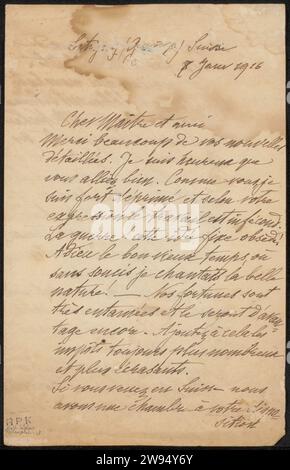 Satigny (Genève) Suisse
8 Janv 1916
Cher Maître et ami
Merci beaucoup de vos nouvelles
détaillées. Je suis heureux que
vous alliez bien. Comme vous je
suis fort déprimé et selon votre
expression travail est infécond.
La guerre cette idée fixe obséd!
Adieu le bon vieux temps, ou
sans soucis je chantais la belle
nature! — Nos fortunes sont
très entamées et le seront davan-
tage encore. Ajoutez à cela les
impôts toujours plus nombreux
et plus écrasants.
Si vous venez en Suisse nous
avons une chambre à votre
MPK
alamy
Image ID: 2W94Y6Y
www.alamy.com